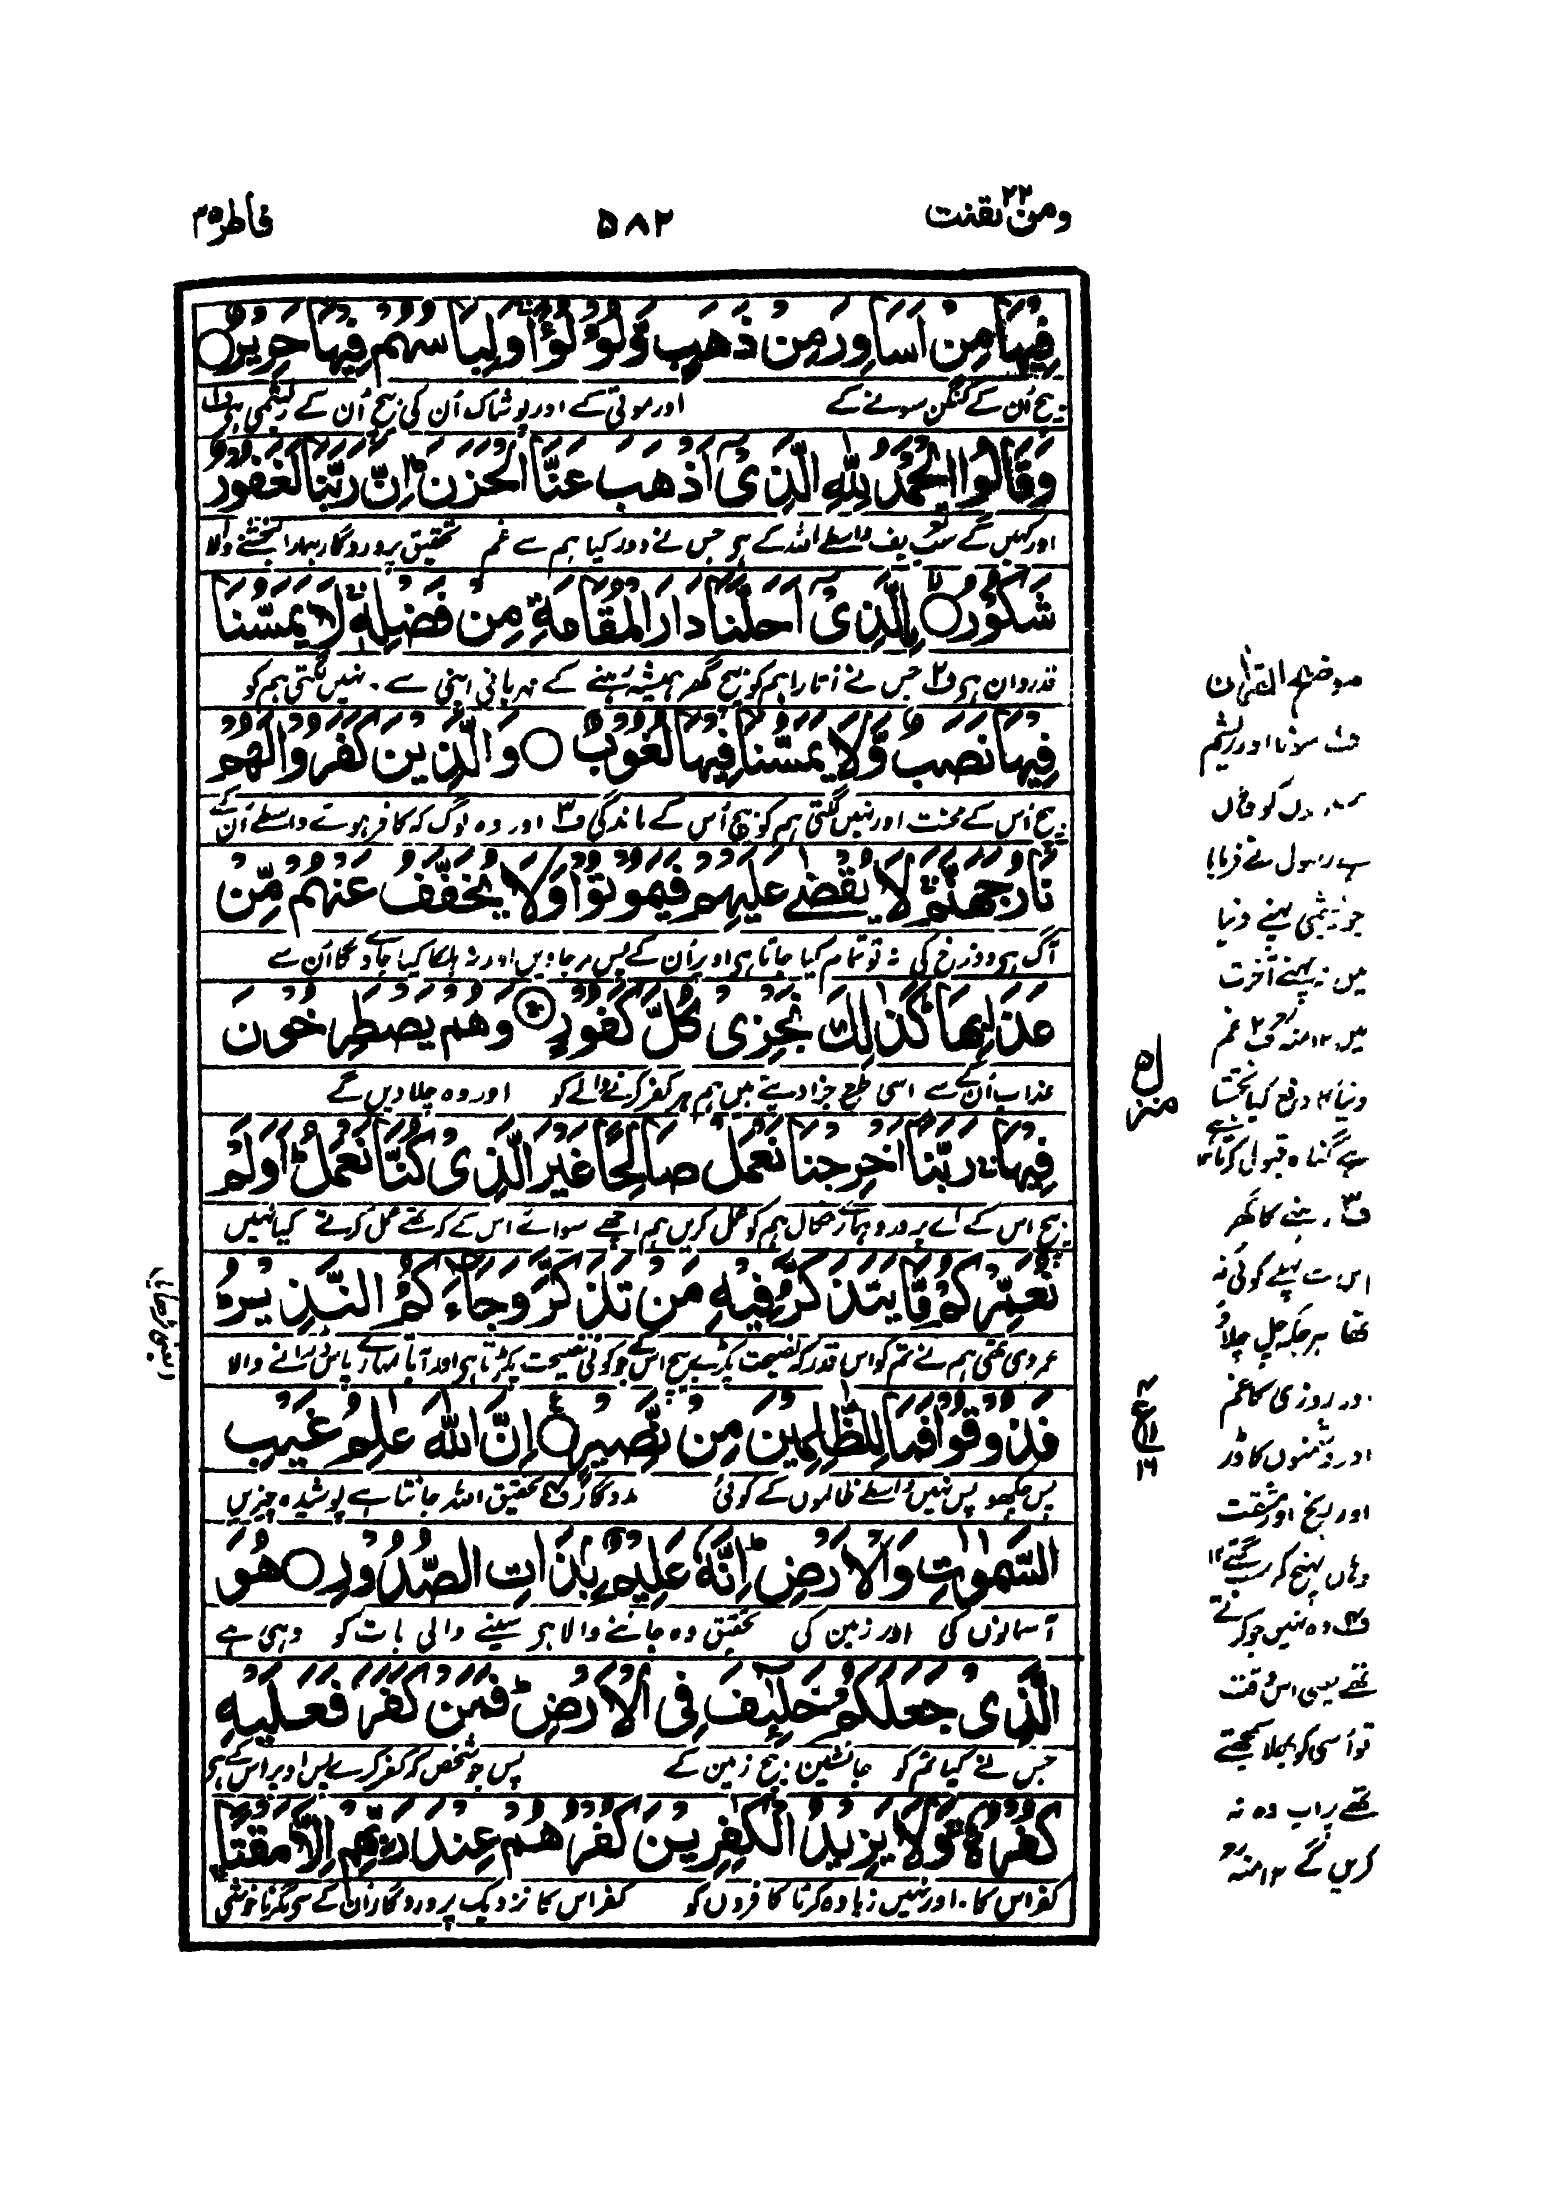 ومن یقنت ۲۲
۵۸۲
فاطر ۳۵
فِيْهَا مِنْ اَسَاوِرَ مِنْ ذَهَبٍ وَّلُؤْلُؤًا وَلِبَاسُهُمْ فِيْهَا حَرِيْرٌ ○
بیچ اُن کے کنگن سونے کے اور موتی کے اور پوشاک اُن کی بیچ اُن کے ریشمی ہے ف۱
وَقَالُوا الْحَمْدُ لِلّٰهِ الَّذِيْٓ اَذْهَبَ عَنَّا الْحَزَنَ ؕ اِنَّ رَبَّنَا لَغَفُوْرٌ
اور کہیں گے سب تعریف واسطے اللہ کے ہی جس نے دور کیا ہم سے غم تحقیق پروردگار ہمارا بخشنے والا
شَكُوْرٌ ○ اِۨلَّذِيْٓ اَحَلَّنَا دَارَ الْمُقَامَةِ مِنْ فَضْلِهٖ ۚ لَا يَمَسُّنَا
قدردان ہی ف۲ جس نے اُتارا ہم کو بیچ گھر ہمیشہ رہنے کے مہربانی اپنی سے، نہیں لگتی ہم کو
فِيْهَا نَصَبٌ وَّلَا يَمَسُّنَا فِيْهَا لُغُوْبٌ ○ وَالَّذِيْنَ كَفَرُوْا لَهُمْ
بیچ اُس کے محنت اور نہیں لگتی ہم کو بیچ اُس کے ماندگی ف۳ اور وہ لوگ کہ کافر ہوئے واسطے اُن کے
نَارُ جَهَنَّمَ ۚ لَا يُقْضٰى عَلَيْهِمْ فَيَمُوْتُوْا وَلَا يُخَفَّفُ عَنْهُمْ مِّنْ
آگ ہی دوزخ کی نہ تو تمام کیا جاتا ہی اوپر اُن کے پس مر جاویں اور نہ ہلکا کیا جاوے گا اُن سے
عَذَابِهَا ؕ كَذٰلِكَ نَجْزِيْ كُلَّ كَفُوْرٍ ○ وَهُمْ يَصْطَرِخُوْنَ
عذاب اُن کے سے اسی طرح جزا دیتے ہیں ہم ہر کفر کرنے والے کو اور وہ چلاویں گے
فِيْهَا ۚ رَبَّنَآ اَخْرِجْنَا نَعْمَلْ صَالِحًا غَيْرَ الَّذِيْ كُنَّا نَعْمَلُ ؕ اَوَلَمْ
بیچ اس کے اے پروردگار ہمارے نکال ہم کو عمل کریں ہم اچھے سوائے اس کے کہ تھے عمل کرتے کیا نہیں
نُعَمِّرْكُمْ مَّا يَتَذَكَّرُ فِيْهِ مَنْ تَذَكَّرَ وَجَآءَكُمُ النَّذِيْرُ ؕ
عمر دی تھی ہم نے تم کو اس قدر کہ نصیحت پکڑے بیچ اس کے جو کوئی نصیحت پکڑتا ہی اور آیا تمہارے پاس ڈرانے والا
فَذُوْقُوْا فَمَا لِلظّٰلِمِيْنَ مِنْ نَّصِيْرٍ ○ اِنَّ اللّٰهَ عٰلِمُ غَيْبِ
پس چکھو پس نہیں واسطے ظالموں کے کوئی مددگار ف۴ تحقیق اللہ جانتا ہے پوشیدہ چیزیں
السَّمٰوٰتِ وَالْاَرْضِ ؕ اِنَّهٗ عَلِيْمٌۢ بِذَاتِ الصُّدُوْرِ ○ هُوَ
آسمانوں کی اور زمین کی تحقیق وہ جاننے والا ہی سینے والی بات کو وہی ہے
الَّذِيْ جَعَلَكُمْ خَلٰٓئِفَ فِي الْاَرْضِ ؕ فَمَنْ كَفَرَ فَعَلَيْهِ
جس نے کیا تم کو جانشین بیچ زمین کے پس جو شخص کہ کفر کرے پس اوپر اس کے ہی
كُفْرُهٗ ؕ وَلَا يَزِيْدُ الْكٰفِرِيْنَ كُفْرُهُمْ عِنْدَ رَبِّهِمْ اِلَّا مَقْتًا ۚ
کفر اس کا، اور نہیں زیادہ کرتا کافروں کو کفر اس کا نزدیک پروردگار اُن کے کے مگر ناخوشی
موضح القرآن
ف۱ سونا اور ریشم
رسول نے فرمایا
جو ریشمی پہنے دنیا
میں نہ پہنے آخرت
میں ۱۲ منہ ف۲ غم
دنیا کا دفع کیا بخشتا ہے
گناہ قبول کرتا
ف۳ رہنے کا گھر
اس سے پہلے کوئی نہ
تھا ہر جگہ چل چلاؤ
اور روزی کا غم
اور دشمنوں کا ڈر
اور رنج اور مشقت
وہاں پہنچ کر سب گئے ۱۲
ف۴ وہ نہیں جو کرتے
تھے یعنی اس وقت
تو اُسی کو بھلا سمجھتے
تھے پر اب وہ نہ
کریں گے ۱۲ منہ
منزل ۵
ع
۱۶